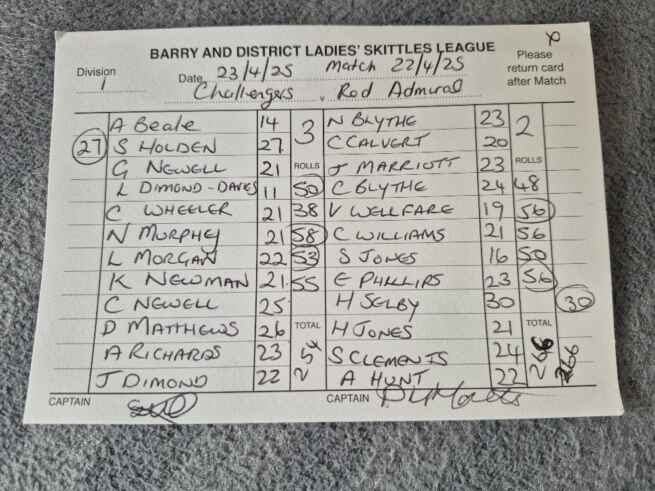 BARRY AND DISTRICT LADIES' SKITTLES LEAGUE
Please return card after Match
Division 1
Date 23/4/25 Match 22/4/25
Challengers v Red Admiral
A Beale 14 3 N BLYTHE 23 2
27 S HOLDEN 27 C CALVERT 20
G NEWELL 21 ROLLS J MARRIOTT 23 ROLLS
L DIMOND-DAVES 11 50 C BLYTHE 24 48
C WHEELER 21 38 V WELLFARE 19 56
N MURPHY 21 58 C WILLIAMS 21 56
L MORGAN 22 53 S JONES 16 50
K NEWMAN 21 55 E PHILLIPS 23 56
C NEWELL 25 H SELBY 30 30
D MATTHEWS 26 TOTAL H JONES 21 TOTAL
A RICHARDS 23 254 S CLEMENTS 24 266
J DIMOND 22 A HUNT 22
CAPTAIN CAPTAIN